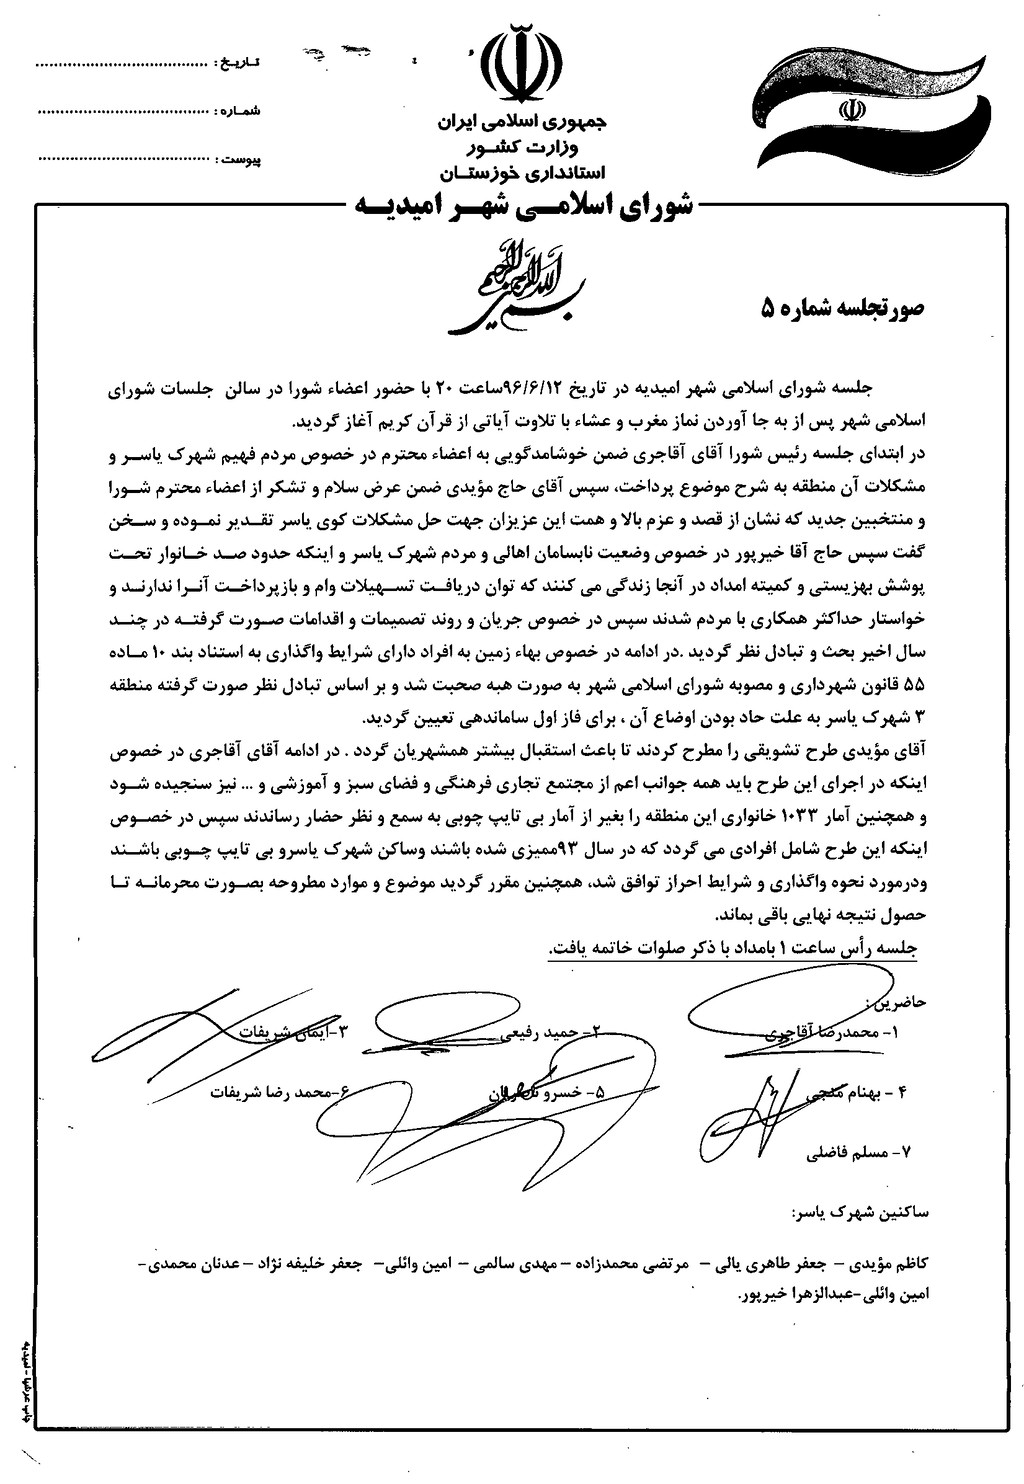 تاریخ : ..........................................
شماره : ..........................................
پیوست : ..........................................
جمهوری اسلامی ایران
وزارت کشور
استانداری خوزستان
شورای اسلامی شهر امیدیه
بسم الله الرحمن الرحیم
صورتجلسه شماره ۵
جلسه شورای اسلامی شهر امیدیه در تاریخ ۹۶/۶/۱۲ساعت ۲۰ با حضور اعضاء شورا در سالن جلسات شورای
اسلامی شهر پس از به جا آوردن نماز مغرب و عشاء با تلاوت آیاتی از قرآن کریم آغاز گردید.
در ابتدای جلسه رئیس شورا آقای آقاجری ضمن خوشامدگویی به اعضاء محترم در خصوص مردم فهیم شهرک یاسر و
مشکلات آن منطقه به شرح موضوع پرداخت، سپس آقای حاج مؤیدی ضمن عرض سلام و تشکر از اعضاء محترم شورا
و منتخبین جدید که نشان از قصد و عزم بالا و همت این عزیزان جهت حل مشکلات کوی یاسر تقدیر نموده و سخن
گفت سپس حاج آقا خیرپور در خصوص وضعیت نابسامان اهالی و مردم شهرک یاسر و اینکه حدود صد خانوار تحت
پوشش بهزیستی و کمیته امداد در آنجا زندگی می کنند که توان دریافت تسهیلات وام و بازپرداخت آنرا ندارند و
خواستار حداکثر همکاری با مردم شدند سپس در خصوص جریان و روند تصمیمات و اقدامات صورت گرفته در چند
سال اخیر بحث و تبادل نظر گردید .در ادامه در خصوص بهاء زمین به افراد دارای شرایط واگذاری به استناد بند ۱۰ ماده
۵۵ قانون شهرداری و مصوبه شورای اسلامی شهر به صورت هبه صحبت شد و بر اساس تبادل نظر صورت گرفته منطقه
۳ شهرک یاسر به علت حاد بودن اوضاع آن ، برای فاز اول ساماندهی تعیین گردید.
آقای مؤیدی طرح تشویقی را مطرح کردند تا باعث استقبال بیشتر همشهریان گردد . در ادامه آقای آقاجری در خصوص
اینکه در اجرای این طرح باید همه جوانب اعم از مجتمع تجاری فرهنگی و فضای سبز و آموزشی و ... نیز سنجیده شود
و همچنین آمار ۱۰۳۳ خانواری این منطقه را بغیر از آمار بی تایپ چوبی به سمع و نظر حضار رساندند سپس در خصوص
اینکه این طرح شامل افرادی می گردد که در سال ۹۳ممیزی شده باشند وساکن شهرک یاسرو بی تایپ چوبی باشند
ودرمورد نحوه واگذاری و شرایط احراز توافق شد، همچنین مقرر گردید موضوع و موارد مطروحه بصورت محرمانه تا
حصول نتیجه نهایی باقی بماند.
جلسه رأس ساعت ۱ بامداد با ذکر صلوات خاتمه یافت.
حاضرین :
۱- محمدرضا آقاجری ۲- حمید رفیعی ۳-ایمان شریفات
۴ - بهنام منجی ۵- خسرو ۶-محمد رضا شریفات
۷- مسلم فاضلی
ساکنین شهرک یاسر:
کاظم مؤیدی – جعفر طاهری یالی – مرتضی محمدزاده – مهدی سالمی – امین وائلی– جعفر خلیفه نژاد – عدنان محمدی-
امین وائلی-عبدالزهرا خیرپور.